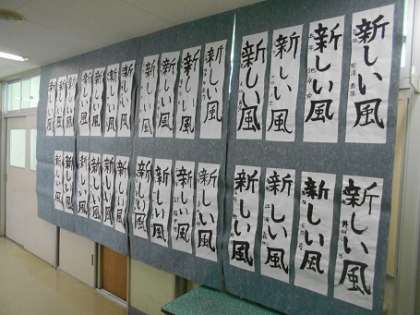 新しい風
新しい風
新しい風
新しい風
新しい風
新しい風
新しい風
新しい風
新しい風
新しい風
新しい風
新しい風
新しい風
新しい風
新しい風
新しい風
新しい風
新しい風
新しい風
新しい風
新しい風
新しい風
新しい風
新しい風
新しい風
新しい風